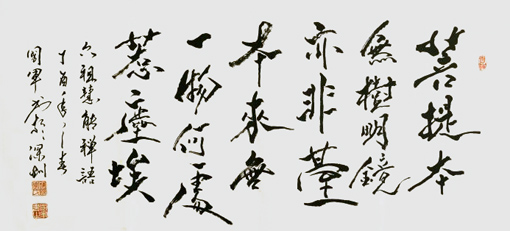 菩提本
無樹明鏡
亦非臺
本來無
一物何處
惹塵埃
六祖慧能禪語
丁酉年之春
國軍書於深圳